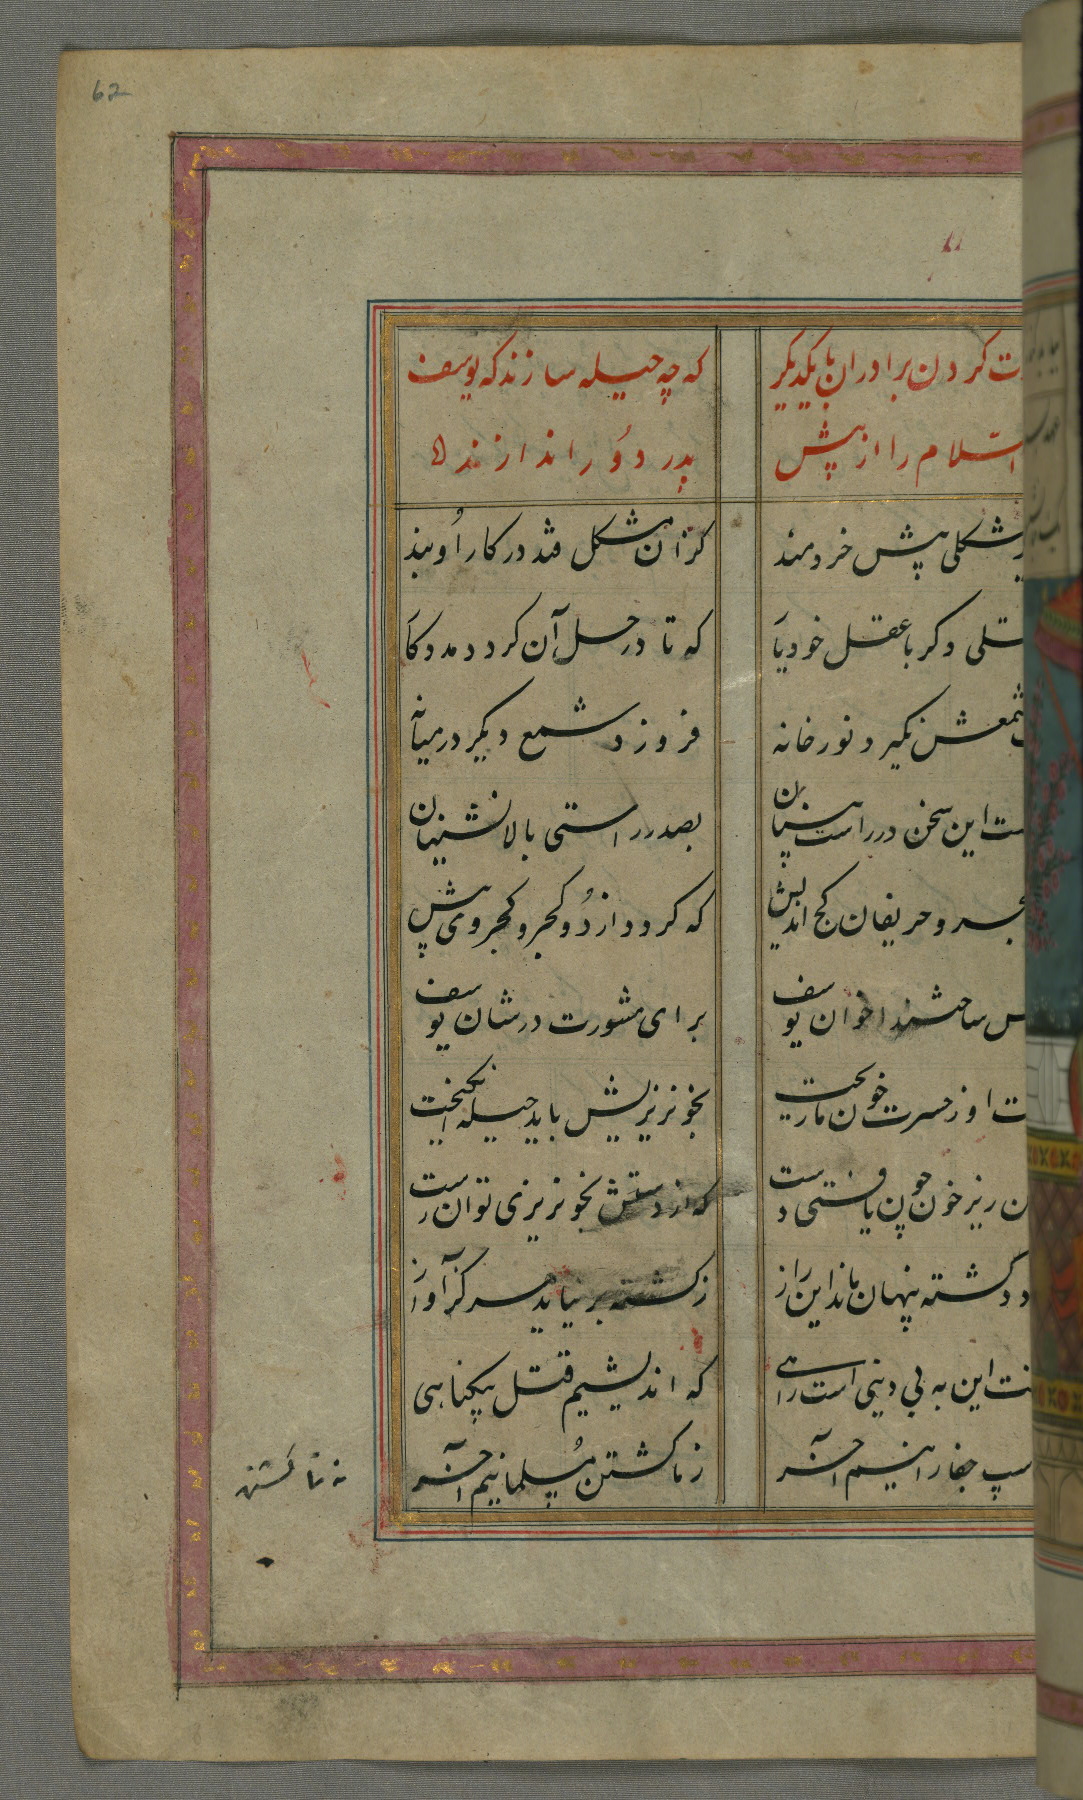 ت کردن برادران با یکدیگر که چه حیله سازند که یوسف
السلام را از پیش پدر دور اندازند
مشکلی پیش خردمند کزان مشکل فتد در کار او بند
قلی دگر با عقل خود یار که تا در حل آن گردد مددکار
شمعش نگیرد نور خانه فروزد شمع دیگر در میانه
ست این سخن در راست بینان بصدر راستی بالانشینان
جرو حریفان کج اندیش که گردد از دو کجرو کجروی بیش
س ساختند اخوان یوسف برای مشورت در شان یوسف
ت او ز حسرت خون ما ریخت بخونریزیش باید حیله انگیخت
ن ریز خون چون یافتی دست که از دستش بخونریزی توان رست
د کشته پنهان ماند این راز ز کشته بر نیاید هرگز آواز
فت این به بی دینی است راهی که اندیشیم قتل بیگناهی
سپ جفا رانیم آخر ز ما کشتن مسلمانیم آخر
کشتن
62